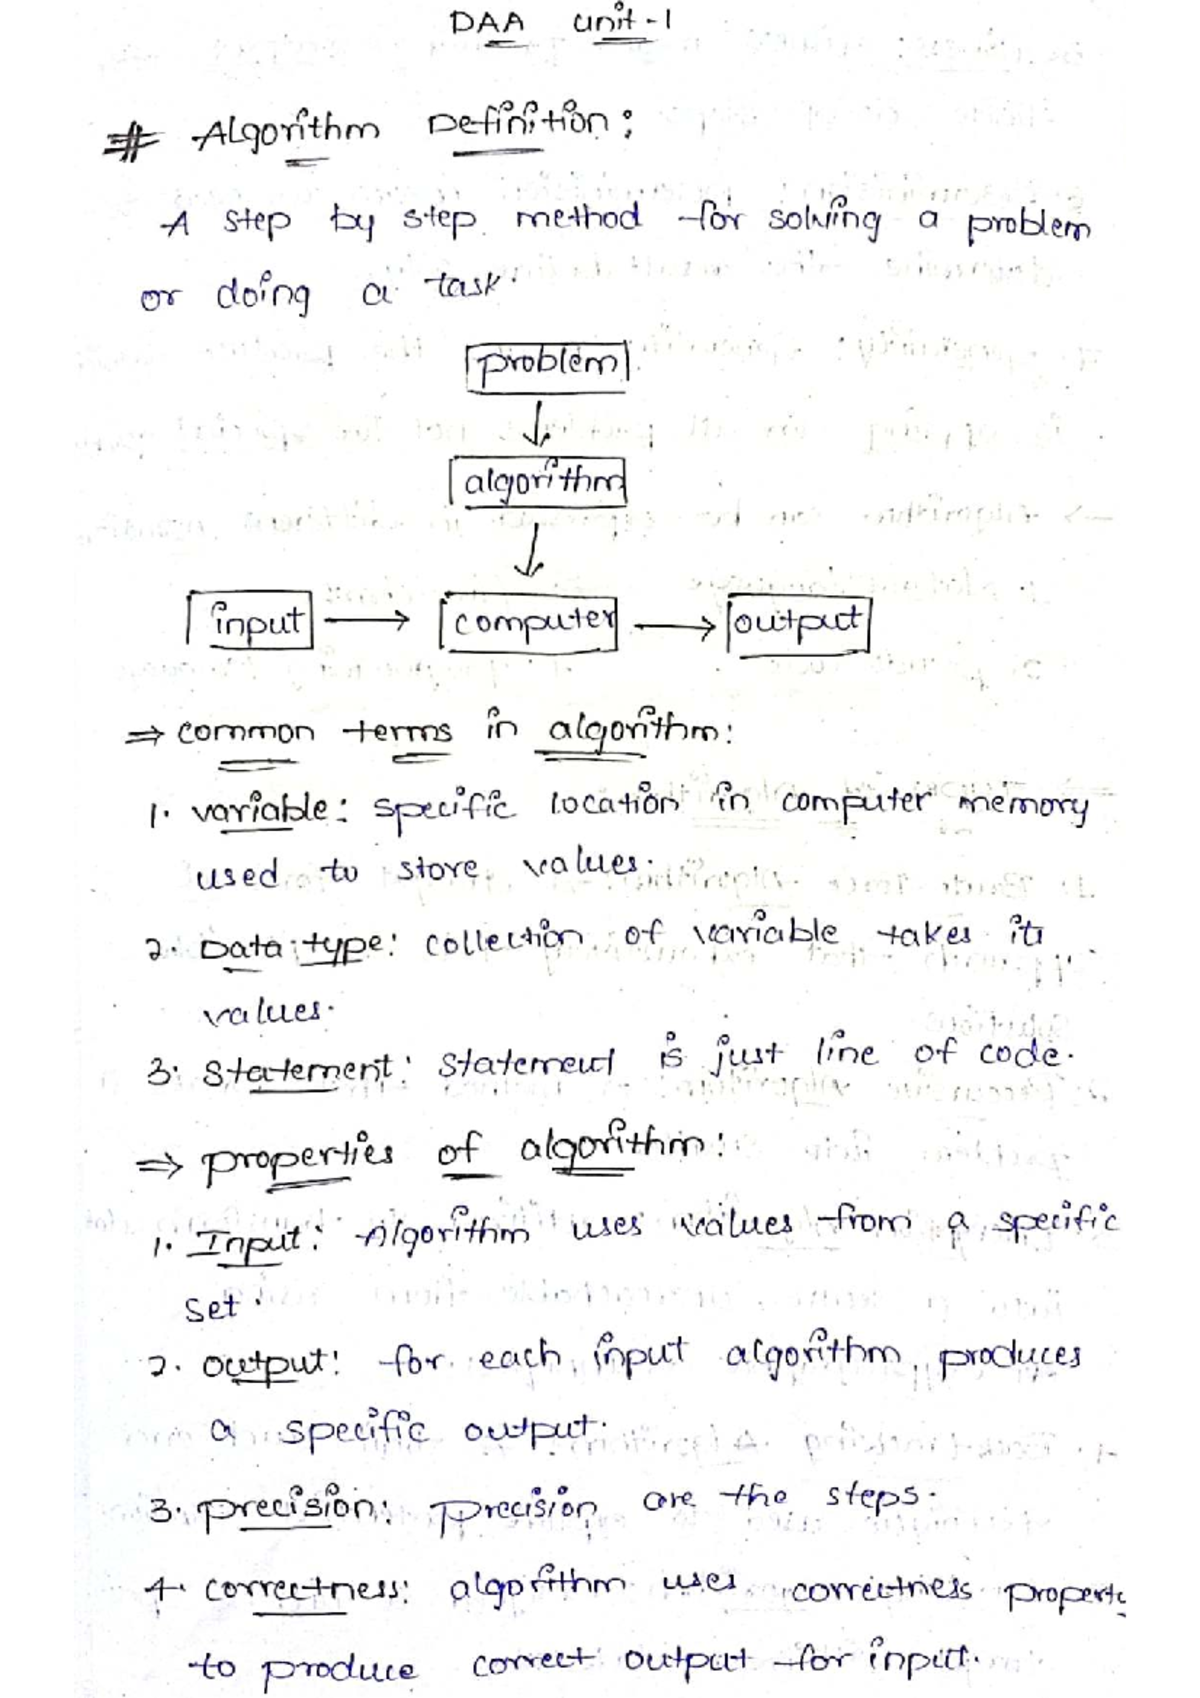 DAA unit-1
# Algorithm Definition:
A step by step method for solving a problem
or doing a task.
problem
algorithm
input → computer → output
⇒ common terms in algorithm:
1. variable: specific location in computer memory
used to store values.
2. Data type: collection of variable takes its
values.
3. Statement: Statement is just line of code.
⇒ properties of algorithm:
1. Input: Algorithm uses values from a specific
set.
2. output: for each input algorithm produces
a specific output.
3. precision: precision are the steps.
4. correctness: algorithm uses correctness property
to produce correct output for input.